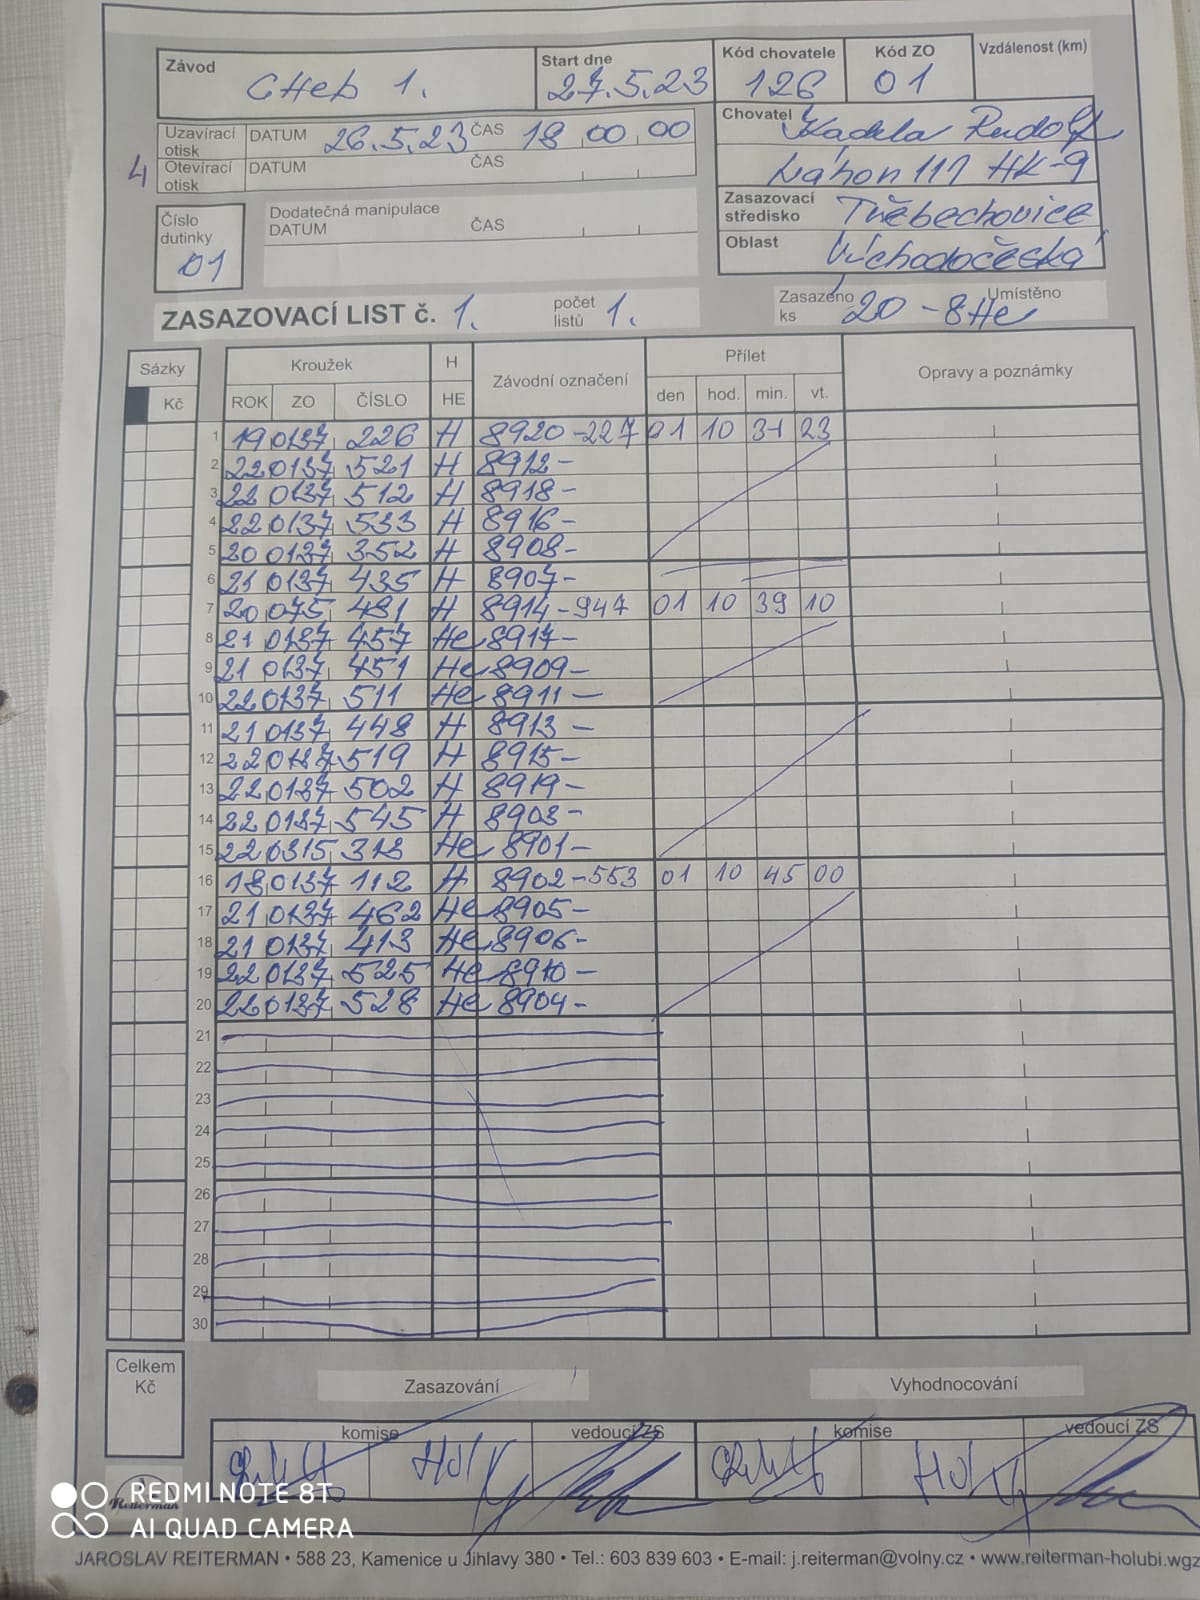 Závod CHeb 1. Start dne 27.5.23 Kód chovatele 126 Kód ZO 01 Vzdálenost (km)
Uzavírací otisk DATUM 26.5.23 ČAS 18 00 00
4 Otevírací otisk DATUM ČAS
Chovatel Kadela Rudolf
Náhon 111 HK-9
Číslo dutinky 01
Dodatečná manipulace
DATUM ČAS
Zasazovací středisko Třebechovice
Oblast Východočeská
ZASAZOVACÍ LIST č. 1. počet listů 1. Zasazeno ks 20 - 8He Umístěno
Sázky Kroužek H Závodní označení Přílet Opravy a poznámky
Kč ROK ZO ČÍSLO HE den hod. min. vt.
1 19 0137 226 H 8920-227 01 10 31 23
2 22 0137 521 H 8912-
3 22 0137 512 H 8918-
4 22 0137 533 H 8916-
5 20 0137 352 H 8908-
6 21 0137 435 H 8907-
7 20 075 481 H 8914-947 01 10 39 10
8 21 0137 457 He 8917-
9 21 0137 451 He 8909-
10 22 0137 511 He 8911-
11 21 0137 448 H 8913-
12 22 0137 519 H 8915-
13 22 0137 502 H 8919-
14 22 0137 545 H 8903-
15 22 0315 313 He 8901-
16 18 0137 112 H 8902-553 01 10 45 00
17 21 0137 462 He 8905-
18 21 0137 413 He 8906-
19 22 0137 525 He 8910-
20 22 0137 528 He 8904-
21
22
23
24
25
26
27
28
29
30
Celkem Kč
Zasazování Vyhodnocování
komise vedoucí ZS komise vedoucí ZS
Reiterman
REDMI NOTE 8T
AI QUAD CAMERA
JAROSLAV REITERMAN • 588 23, Kamenice u Jihlavy 380 • Tel.: 603 839 603 • E-mail: j.reiterman@volny.cz • www.reiterman-holubi.wgz